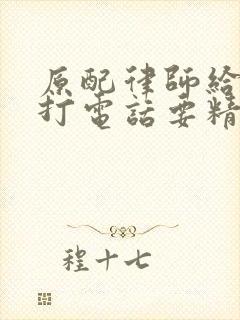 原配律師給
打電話要精
程十七